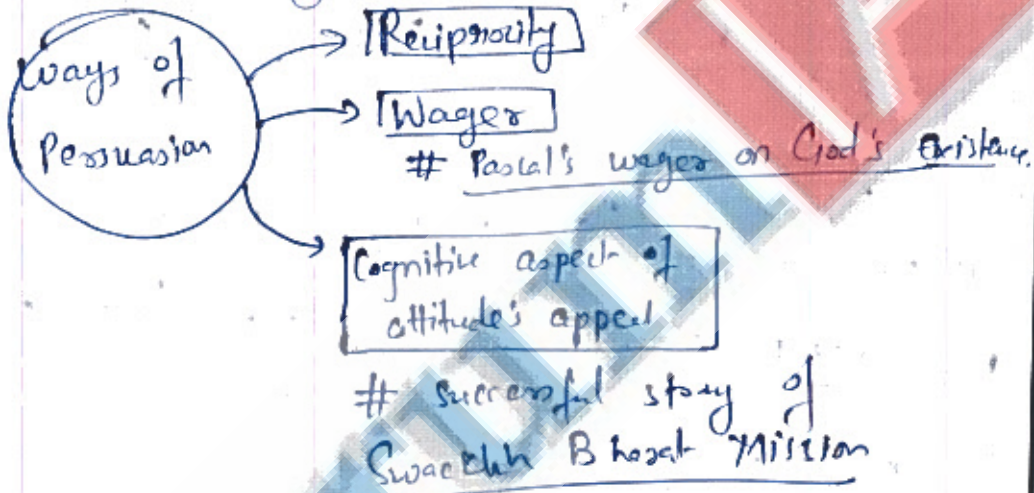 Ways of
Persuasion
Reciprocity
Wager
# Pascal's wager on God's Existence.
Cognitive aspect of
attitude's appeal
# successful story of
Swachh Bharat Mission